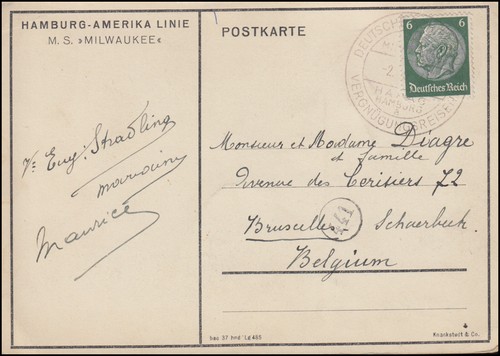 HAMBURG-AMERIKA LINIE
M. S. »MILWAUKEE«
POSTKARTE
6 6
Deutsches Reich
DEUTSCHE
HAMBURG
VERGNÜGUNGSREISEN
Eug. Stradling
Maurice
Monsieur et Madame Diagre
et famille
Avenue des Cerisiers 72
Bruxelles Schaerbeek
Belgium
bes 37 hnd Lg 485
Knackstedt & Co.